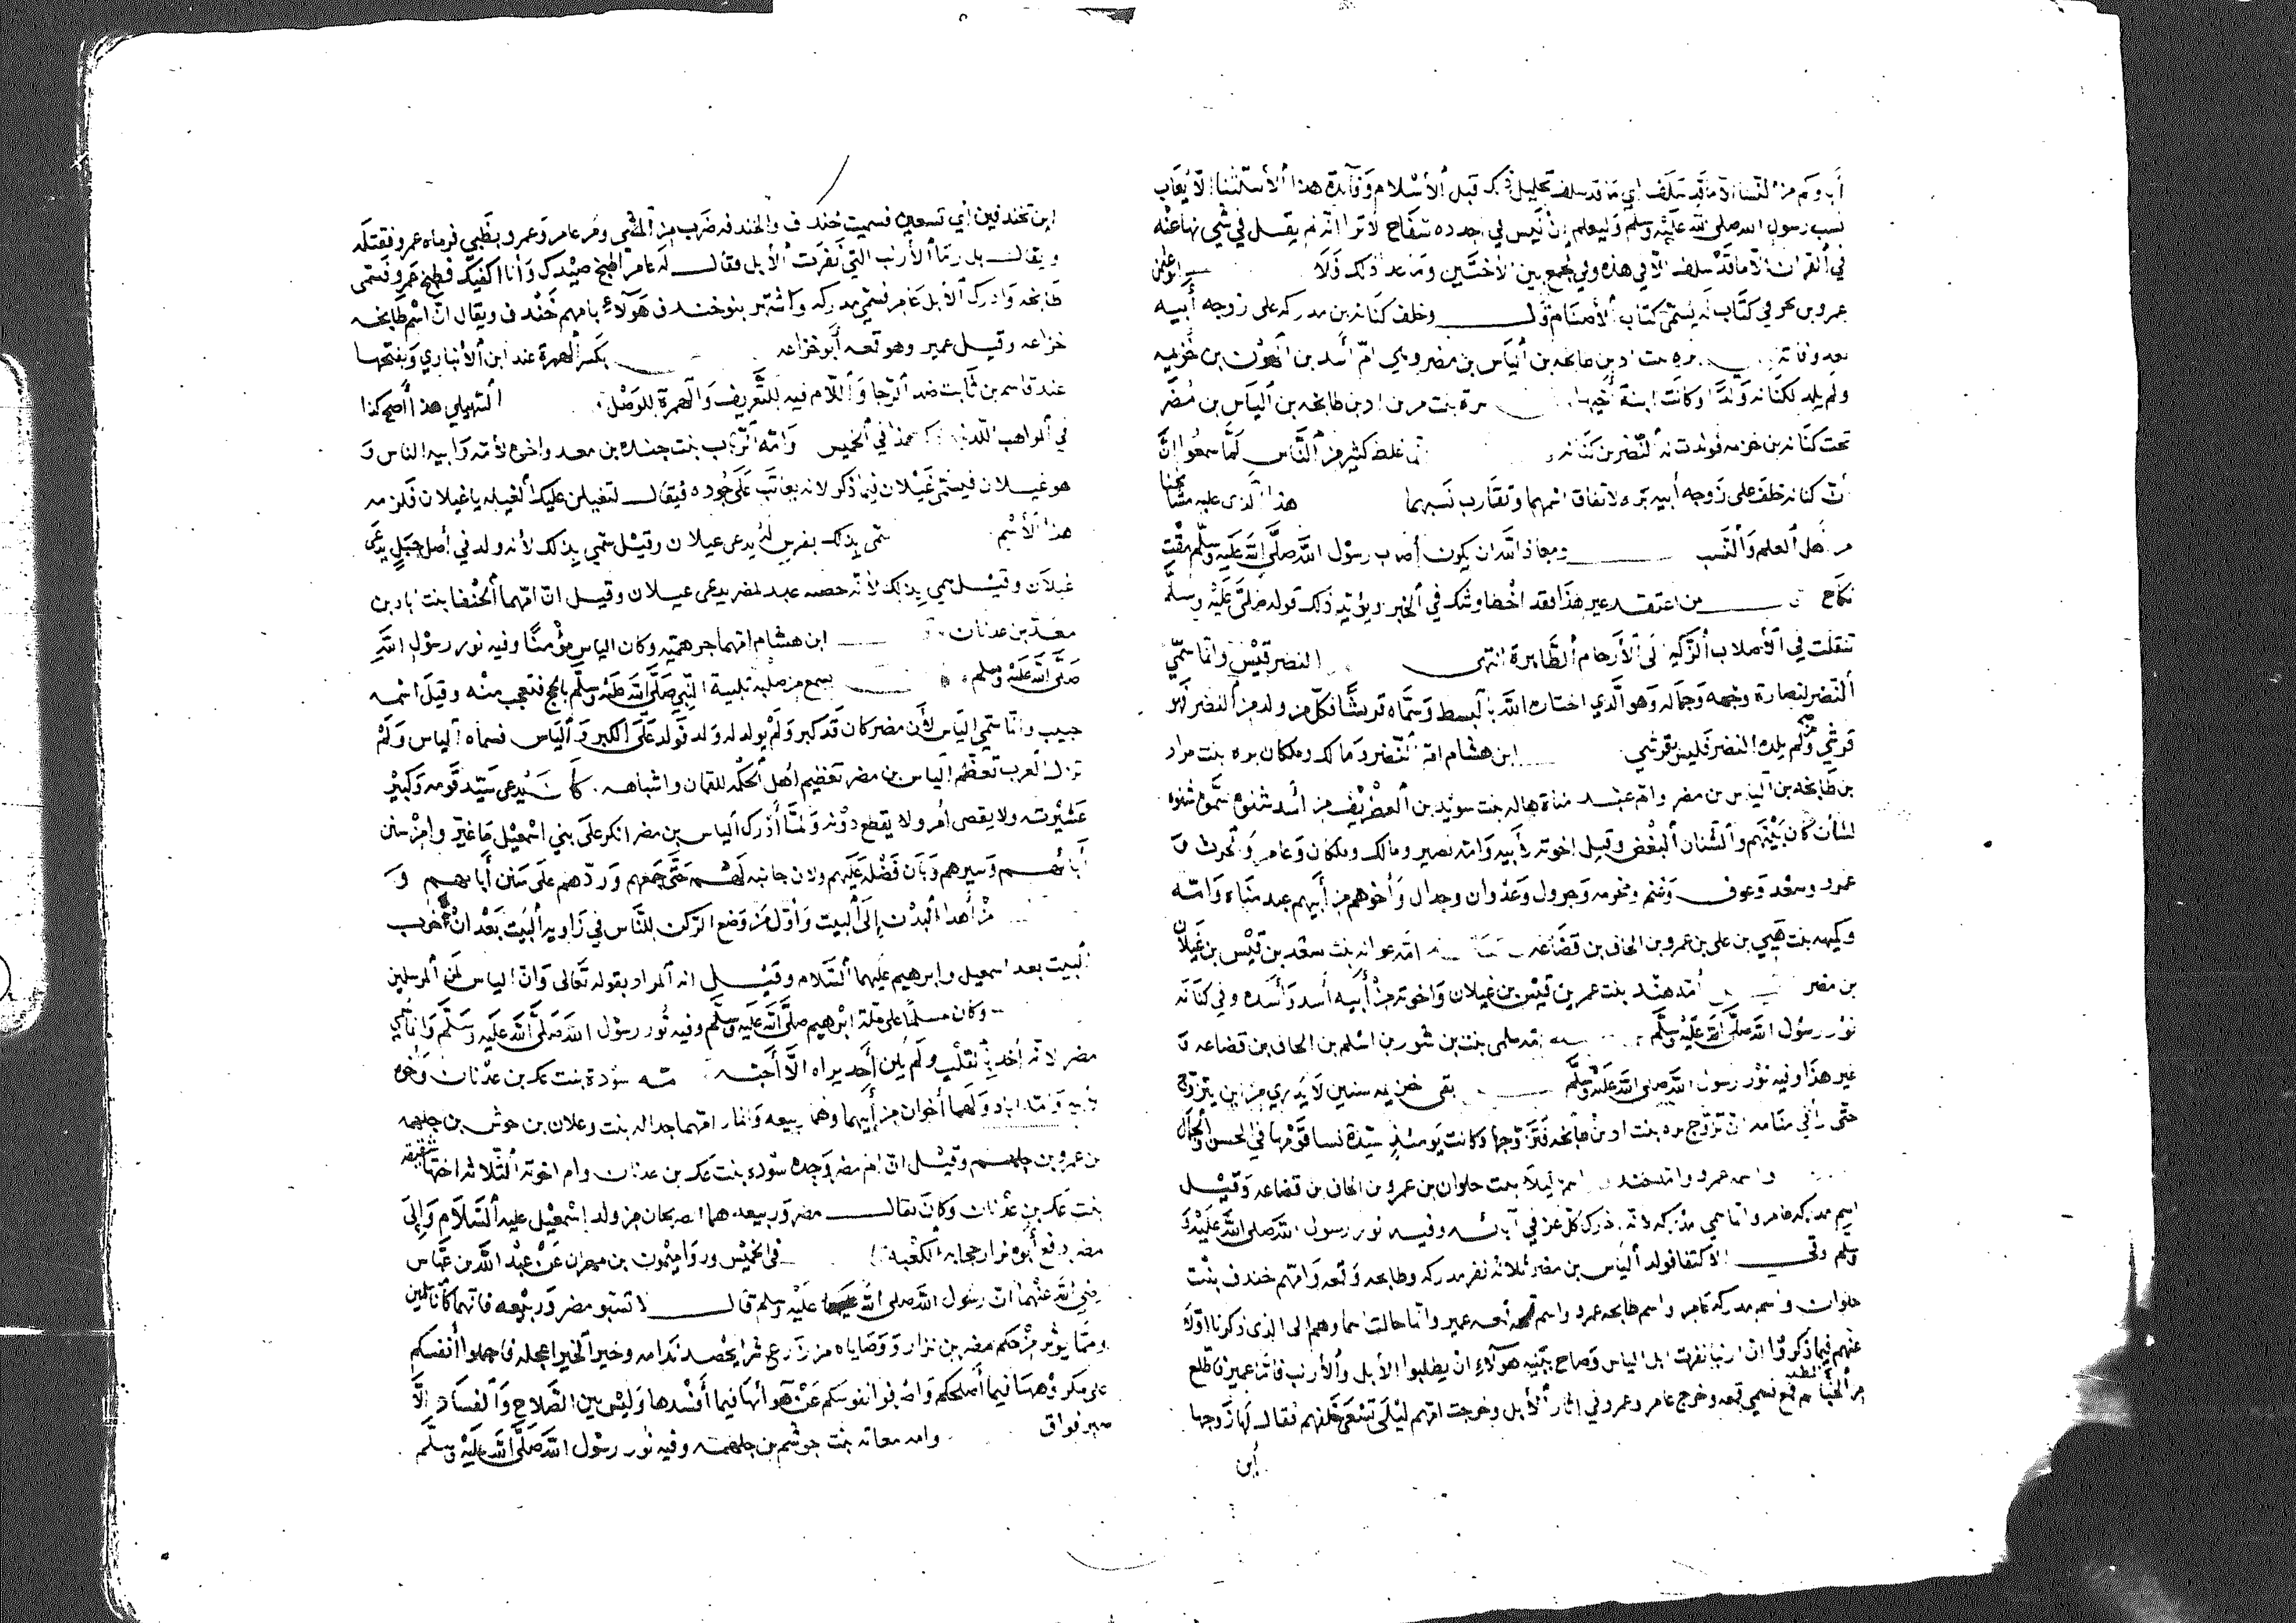 أباؤكم من النسا الا ما قد سلف اي ما قد سلف تحليل ذلك قبل الاسلام وفائدة هذا الاستثنا الا يعاب
نسب رسول الله صلى الله عليه وسلم وليعلم ان ليس في اجداده سفاح الا ترا انه لم يقل في شي نها عنه
في القران الا ما قد سلف الا في هذه وفي الجمع بين الاختين وما عدا ذلك فلا
عمرو بن بحر في كتاب له يسمى كتاب الأصنام قال وخلف كنانه بن مدركه على زوجه أبيه
بعد وفاته بره بنت اد بن طابخه بن الياس بن مضر وهي ام أسد بن الهون بن خزيمه
ولم يلد لكنانه ولدا وكانت ابنة أخيها مرة بنت مر بن اد بن طابخه بن الياس بن مضر
تحت كنانه بن خزيمه فولدت له النضر بن كنانه انما غلط كثير من الناس لما سمعوا ان
ان كنانه خلف على زوجه أبيه بره لاتفاق اسمهما وتقارب نسبهما هذا الذي عليه مشايخنا
من أهل العلم والنسب ومعاذ الله ان يكون أصاب رسول الله صلى الله عليه وسلم مقت
نكاح من اعتقد غير هذا فقد اخطا وشك في الخبر ويؤيد ذلك قوله صلى عليه وسلم
تنقلت في الأصلاب الزكيه الى الأرحام الطاهرة انتهى النضر قيس وانما سمي
النضر لنضارة وجهه وجماله وهو الذي اختاره الله بالبسط وسماه قريشا فكل من ولد من النضر فهو
قرشي ومن لم يلده النضر فليس بقرشي ابن هشام ام النضر ومالك وملكان بره بنت مراد
بن طابخه بن الياس بن مضر وام عبد مناة هاله بنت سويد بن الغطريف من أسد شنوه سموا شنوه
لشنان كان بينهم والشنان البغض وقيل اخوته لأبيه وامه نصير ومالك وملكان وعامر والحرث و
عمرو وسعد وعوف وغنم ومخرمه وجرول وغذوان وجدال وأخوهم من أبيهم عبد مناه وامه
وكيهه بنت هيي بن على بن عمرو بن الحاف بن قضاعه امه عوانه بنت سعد بن قيس بن غيلان
بن مضر أمه هند بنت عمر بن قيس بن غيلان واخوته من أبيه أسد وأسده وفي كنانه
نور رسول الله صلى الله عليه وسلم امه سلمى بنت بن شور بن اسلم بن الحاف بن قضاعه و
غير هذا وفيه نور رسول الله صلى الله عليه وسلم بقى خزيمه سنين لا يدري من اين يتزوج
حتى رأى في منامه ان تزوج بره بنت اد بن طابخه فتزوجها وكانت يومئذ سيدة نسا قومها في الحسن والجمال
واسمه عمرو وامه خندف ليلا بنت حلوان بن عمرو بن الحاف بن قضاعه وقيل
اسم مدركه عامر وانما سمي مدركه لانه ادرك كل عز في آبائه وفيه نور رسول الله صلى الله عليه و
وسلم وفي الاكتفا فولد الياس بن مضر ثلاثه نفر مدركه وطابخه وقمعه وامهم خندف بنت
حلوان واسم مدركه عامر واسم طابخه عمرو واسم قمعه عمير وانما حالت اسماوهم الى الذي ذكرنا اولا
عنهم فيما ذكروا ان ارنبا نفرت ابل الياس وصاح ببنيه هولاء ان يطلبوا الابل والأرنب فاما عمير فاطلع
من الخبا ثم قمع فسمي قمعه وخرج عامر وعمرو في اثار الأبل وخرجت امهم ليلى تسعى خلفهم فقال لها زوجها
أين
اين تخندفين أي تسعين فسميت خندف والخندفه ضرب من المشي ومر عامر وعمرو بظبي فرماه عمرو فقتله
ويقال بل رما الأرنب التي نفرت الأبل فقال له عامر اطبخ صيدك وأنا اكفيك فطبخ عمرو فسمى
طابخه وادرك الابل عامر فسمى مدركه واشتهر بنو خندف هؤلاء بامهم خندف ويقال ان اسم طابخه
خزاعه وقيل عمير وهو قمعه أبو خزاعه بكسر الهمزة عند ابن الأنباري وبفتحها
عند قاسم بن ثابت ضد الرجا واللام فيه للتعريف والهمزة للوصل السهيلي هذا أصح كذا
في المواهب اللدنيه كذا في الخميس وامه الرباب بنت جنده بن معد واخوه لأمه وابيه الناس و
هو غيلان فيسمى غيلان فيما ذكر لانه يعاتب على جوده فيقال لتغبلن عليك الغيله يا غيلان فلزمه
هذا الأسم سمي بذلك بفرس له يدعى عيلان وقيل سمي بذلك لأنه ولد في أصل جبل يدعى
غيلان وقيل سمي بذلك لأنه حضنه عبد لمضر يدعى عيلان وقيل ان امهما الخنفا بنت اياد بن
معد بن عدنان ابن هشام امهما جرهميه وكان الياس مؤمنا وفيه نور رسول الله
صلى الله عليه وسلم يسمع من صلبه تلبية النبي صلى الله عليه وسلم بالحج فتعجب منه وقيل اسمه
حبيب وانما سمي الياس لأن مضر كان قد كبر ولم يولد له ولد فولد على الكبر واليأس فسماه الياس ولم
تزل العرب تعظم الياس بن مضر تعظيم اهل الحكمه للقمان واشباهه كان يدعى سيد قومه وكبير
عشيرته ولا يقضى أمر ولا يقطع دونه ولما أدرك الياس بن مضر انكر على بني اسمعيل ما غيروا من سنن
أبائهم وسيرهم وبان فضله عليهم ولان جانبه لهم حتى جمعهم وردهم على سنن أبائهم و
من أهدا البدن إلى البيت وأول من وضع الركن للناس في زاويه البيت بعد ان خرب
البيت بعد اسمعيل وابرهيم عليهما السلام وقيل انه المراد بقوله تعالى وان الياس لمن المرسلين
وكان مسلما على ملة ابرهيم صلى الله عليه وسلم وفيه نور رسول الله صلى الله عليه وسلم وانما سمي
مضر لانه أخذ بالقلب ولم يكن أحد يراه الا أحبه مه سودة بنت عك بن عدنان وأخوه
لأبيه وامه اياد ولهما أخوان من أبيهما وهما ربيعه وانمار امهما جداله بنت وعلان بن حوش بن جلهمه
بن عمرو بن جلهم وقيل ان ام مضر وجده سوده بنت عك بن عدنان وام اخوته الثلاثه اختها شقيقه
بنت عك بن عدنان وكان يقال مضر وربيعه هما الصريحان من ولد اسمعيل عليه السلام وإلى
مضر دفع أبوه نزار حجابه الكعبه في الخميس وروا ميمون بن مهران عن عبد الله بن عباس
رضي الله عنهما ان رسول الله صلى الله عليه وسلم قال لا تسبو مضر وربيعه فانهما كانا مسلمين
ومما يؤثر من حكم مضر بن نزار ووصاياه من زرع شرا يحصد ندامه وخير الخير اعجله فاحملوا أنفسكم
على مكروهها فيما أصلحكم واصرفوا نفوسكم عن هوائها فيما أفسدها وليس بين الصلاح والفساد الا
صبر فواق وامه معانه بنت جوشم بن جلهمه وفيه نور رسول الله صلى الله عليه وسلم